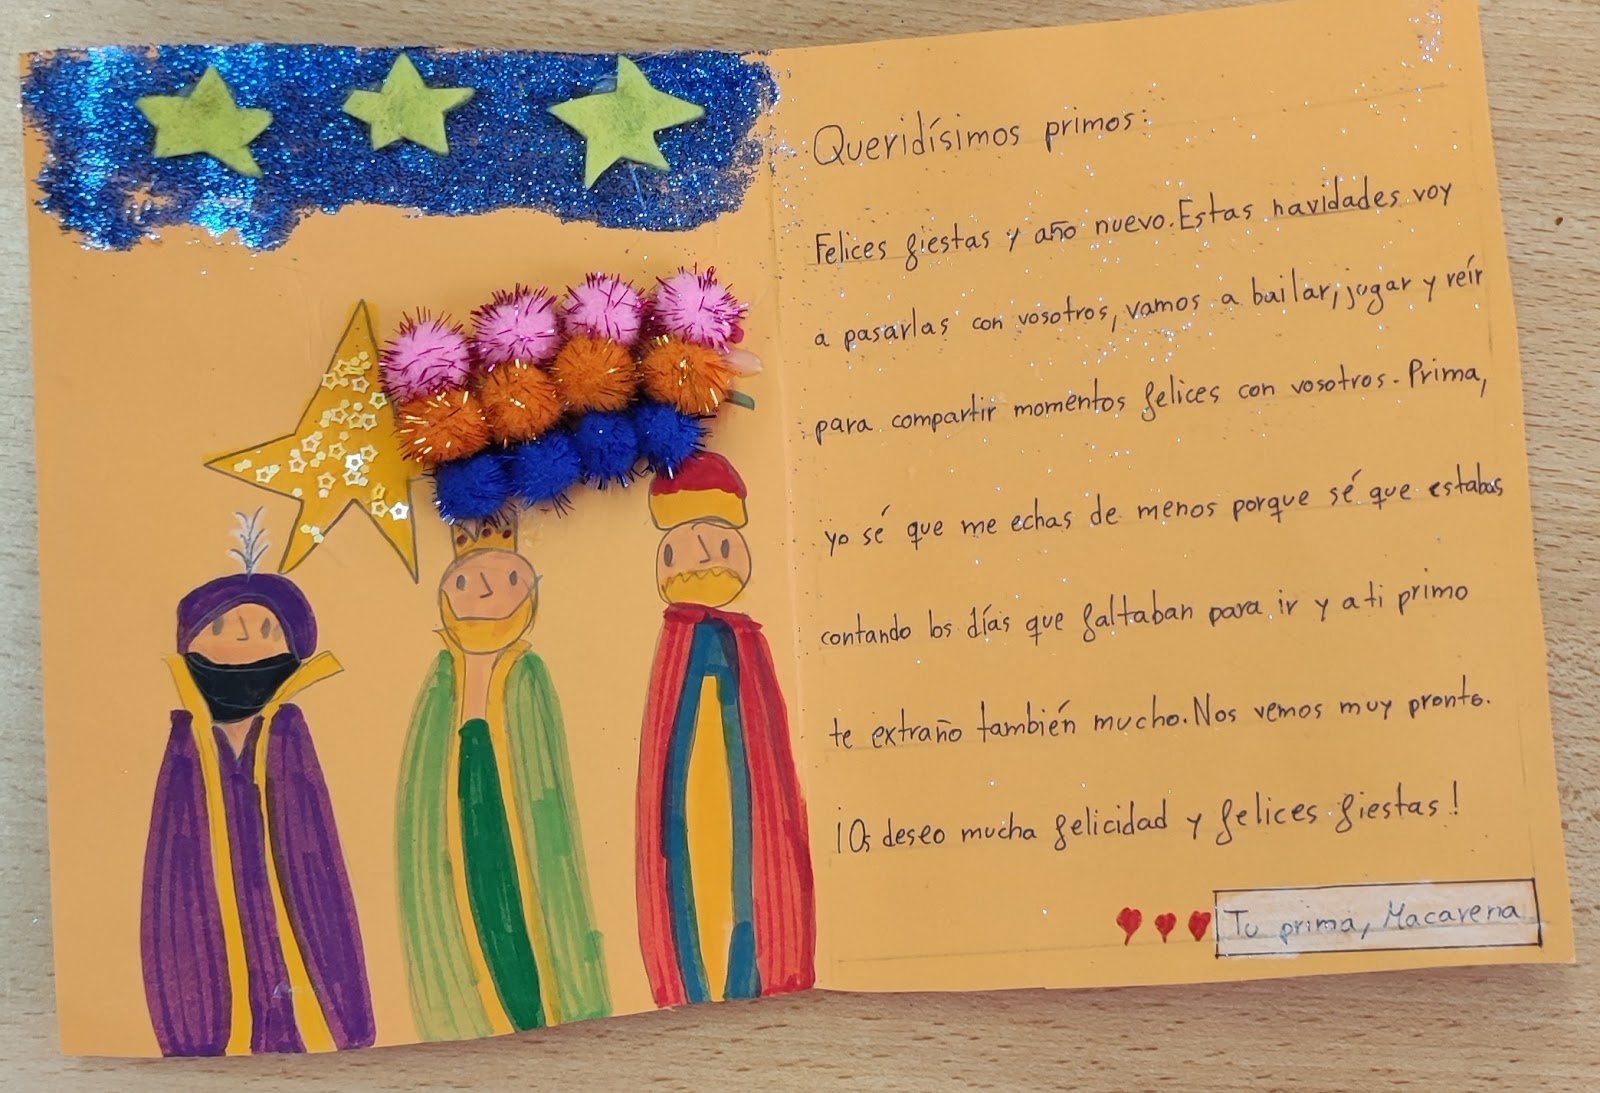 Queridísimos primos:
Felices fiestas y año nuevo. Estas navidades voy
a pasarlas con vosotros, vamos a bailar, jugar y reír
para compartir momentos felices con vosotros. Prima,
yo sé que me echas de menos porque sé que estabas
contando los días que faltaban para ir y a ti primo
te extraño también mucho. Nos vemos muy pronto.
¡Os deseo mucha felicidad y felices fiestas!
Tu prima, Macarena